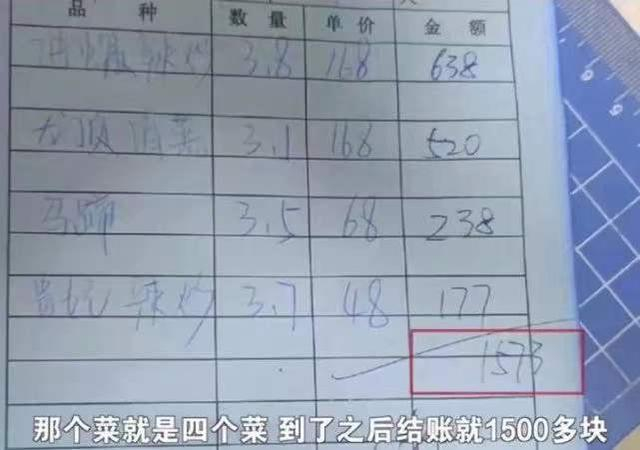 品 种 数 量 单 价 金 额
辣炒 3.8 168 638
3.1 168 520
马蹄 3.5 68 238
辣炒 3.7 48 177
1573
那个菜就是四个菜 到了之后结账就1500多块